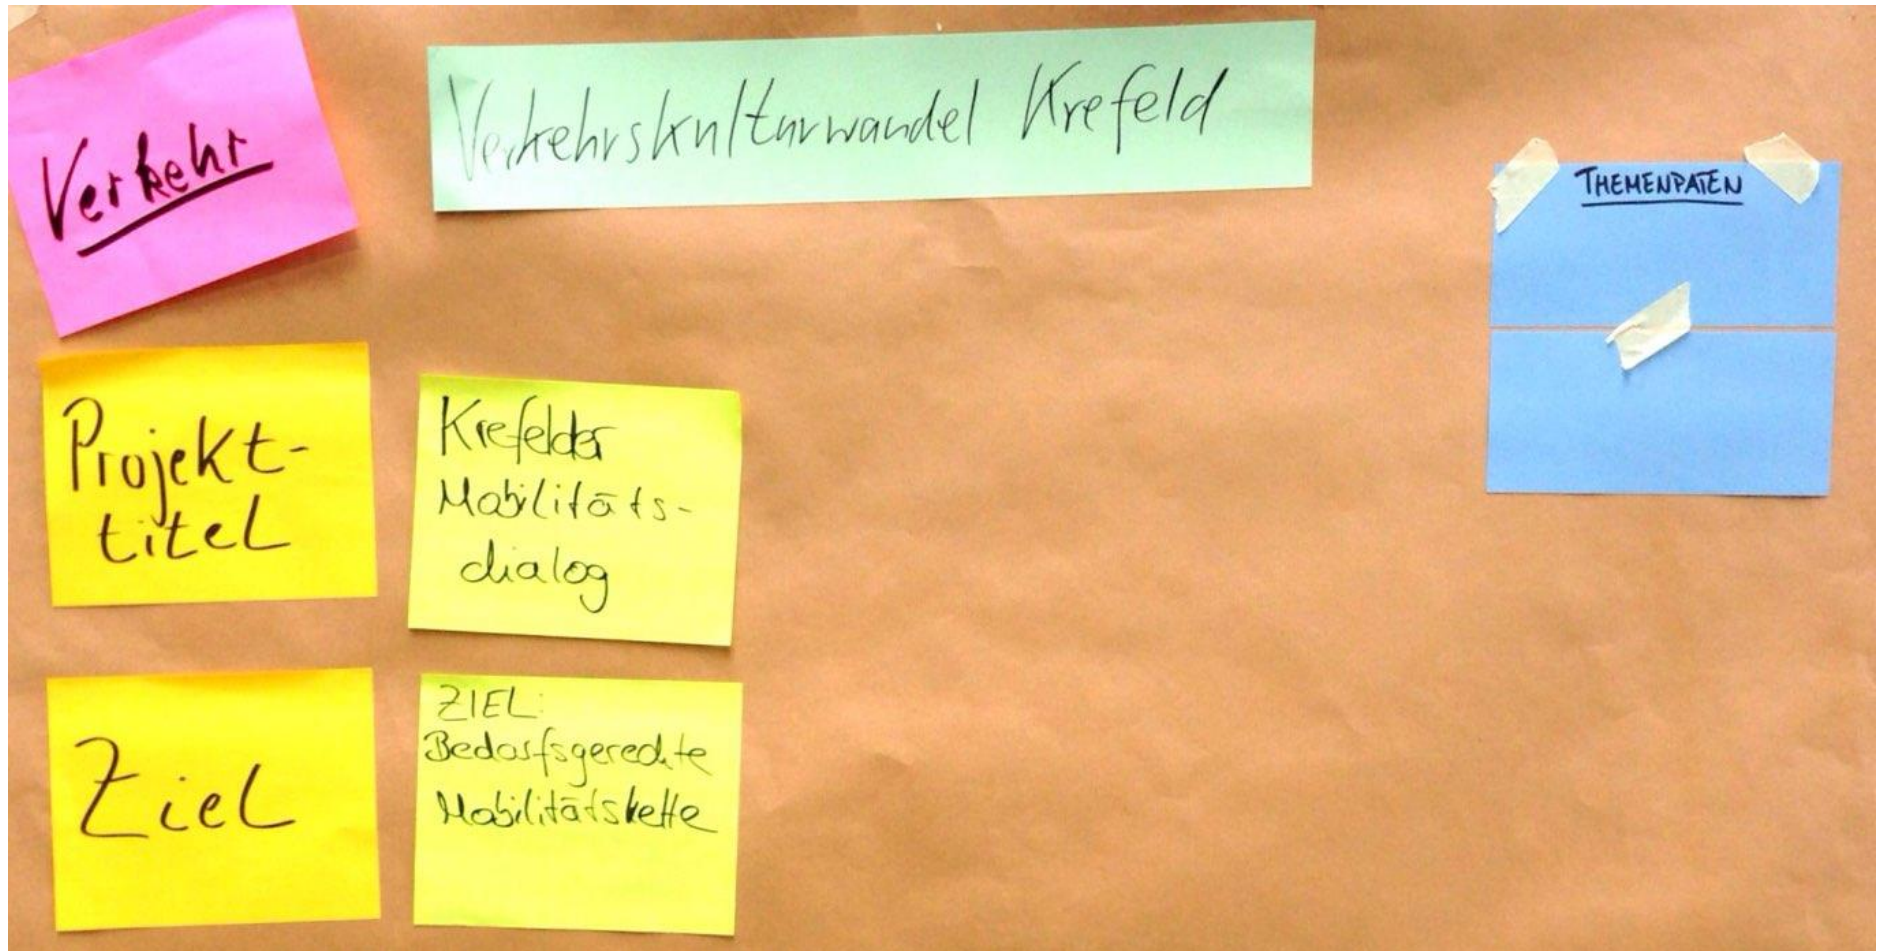 Verkehr
Verkehrskulturwandel Krefeld
THEMENPATEN
Projekt-
titel
Krefelder
Mobilitäts-
dialog
Ziel
ZIEL:
Bedarfsgerechte
Mobilitätskette